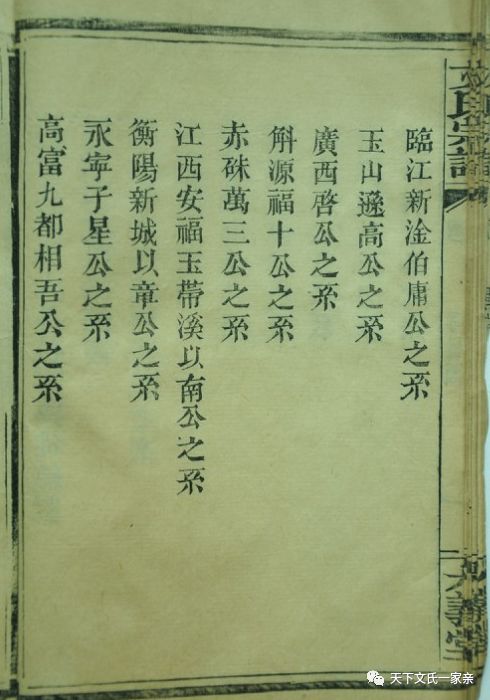 文氏宗譜
臨江新淦伯庸公之系
玉山遜高公之系
廣西啓公之系
斛源福十公之系
赤硃萬三公之系
江西安福玉帶溪以南公之系
衡陽新城以章公之系
永寧子星公之系
高富九都相吾公之系
天下文氏一家亲